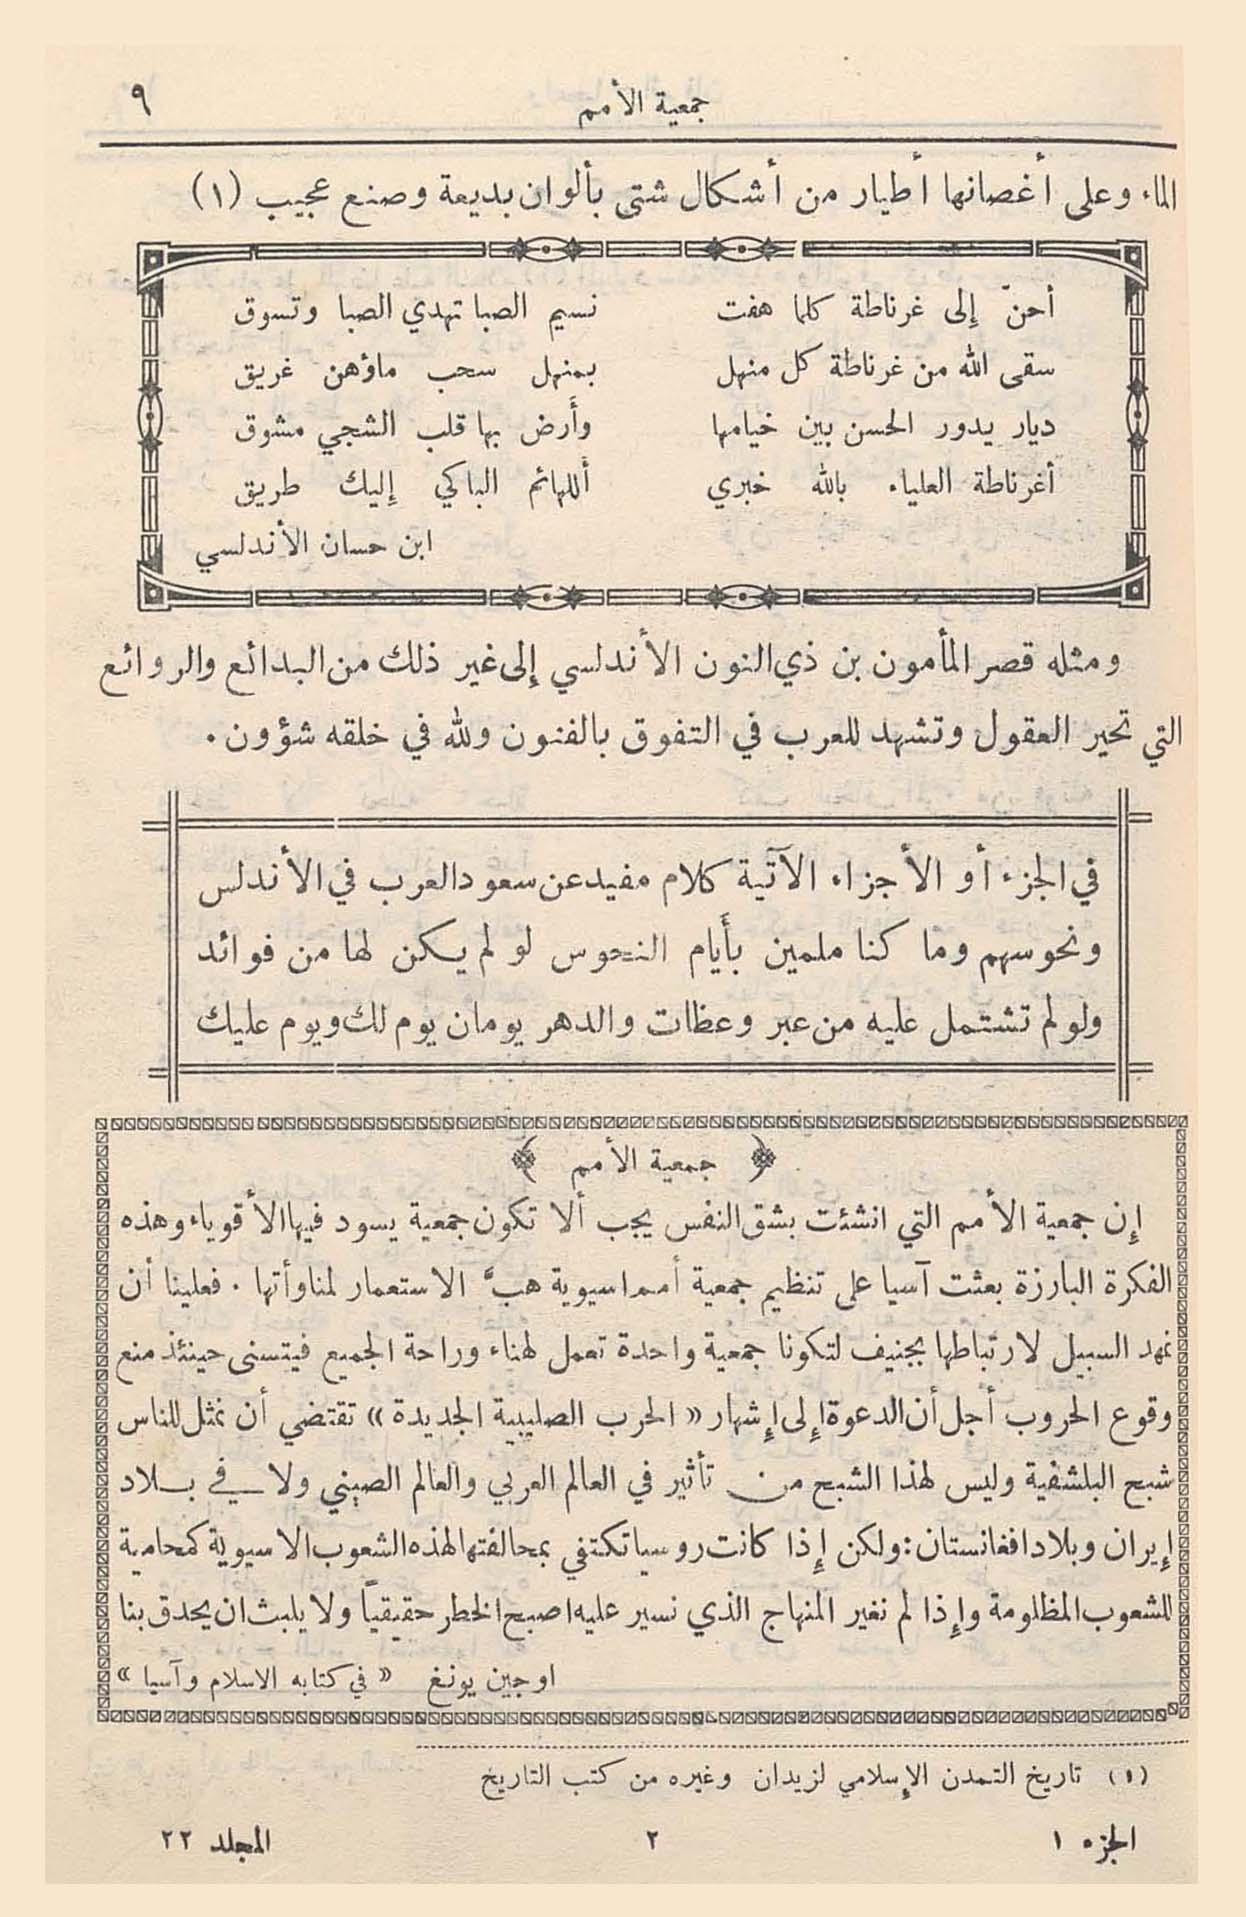 جمعية الأمم ٩
الماء وعلى أغصانها أطيار من أشكال شتى بألوان بديعة وصنع عجيب (١)
أحنّ إلى غرناطة كلما هفت نسيم الصبا تهدي الصبا وتسوق
سقى الله من غرناطة كل منهل بمنهل سحب ماؤهن غريق
ديار يدور الحسن بين خيامها وأَرض بها قلب الشجي مشوق
أغرناطة العلياء بالله خبري أَللهائم الباكي إليك طريق
ابن حسان الأندلسي
ومثله قصر المأمون بن ذي النون الأندلسي إلى غير ذلك من البدائع والروائع
التي تحير العقول وتشهد للعرب في التفوق بالفنون ولله في خلقه شؤون.
في الجزء أو الأجزاء الآتية كلام مفيد عن سعود العرب في الأندلس
ونحوسهم وما كنا ملمين بأَيام النحوس لو لم يكن لها من فوائد
ولو لم تشتمل عليه من عبر وعظات والدهر يومان يوم لك ويوم عليك
﴿ جمعية الأمم ﴾
إن جمعية الأمم التي انشئت بشق النفس يجب ألا تكون جمعية يسود فيها الأقوياء وهذه
الفكرة البارزة بعثت آسيا على تنظيم جمعية أمم اسيوية هبَّ الاستعمار لمناوأتها . فعلينا أن
نمهد السبيل لارتباطها بجنيف لتكونا جمعية واحدة تعمل لهناء وراحة الجميع فيتسنى حينئذ منع
وقوع الحروب أجل أن الدعوة إلى إشهار « الحرب الصليبية الجديدة » تقتضي أن نمثل للناس
شبح البلشفية وليس لهذا الشبح من تأثير في العالم العربي والعالم الصيني ولا في بلاد
إيران وبلاد افغانستان: ولكن إذا كانت روسيا تكتفي بمحالفتها لهذه الشعوب الاسيوية كمحامية
للشعوب المظلومة وإذا لم نغير المنهاج الذي نسير عليه اصبح الخطر حقيقياً ولا يلبث ان يحدق بنا
اوجين يونغ « في كتابه الاسلام وآسيا »
(١) تاريخ التمدن الإسلامي لزيدان وغيره من كتب التاريخ
الجزء ١ ٢ المجلد ٢٢